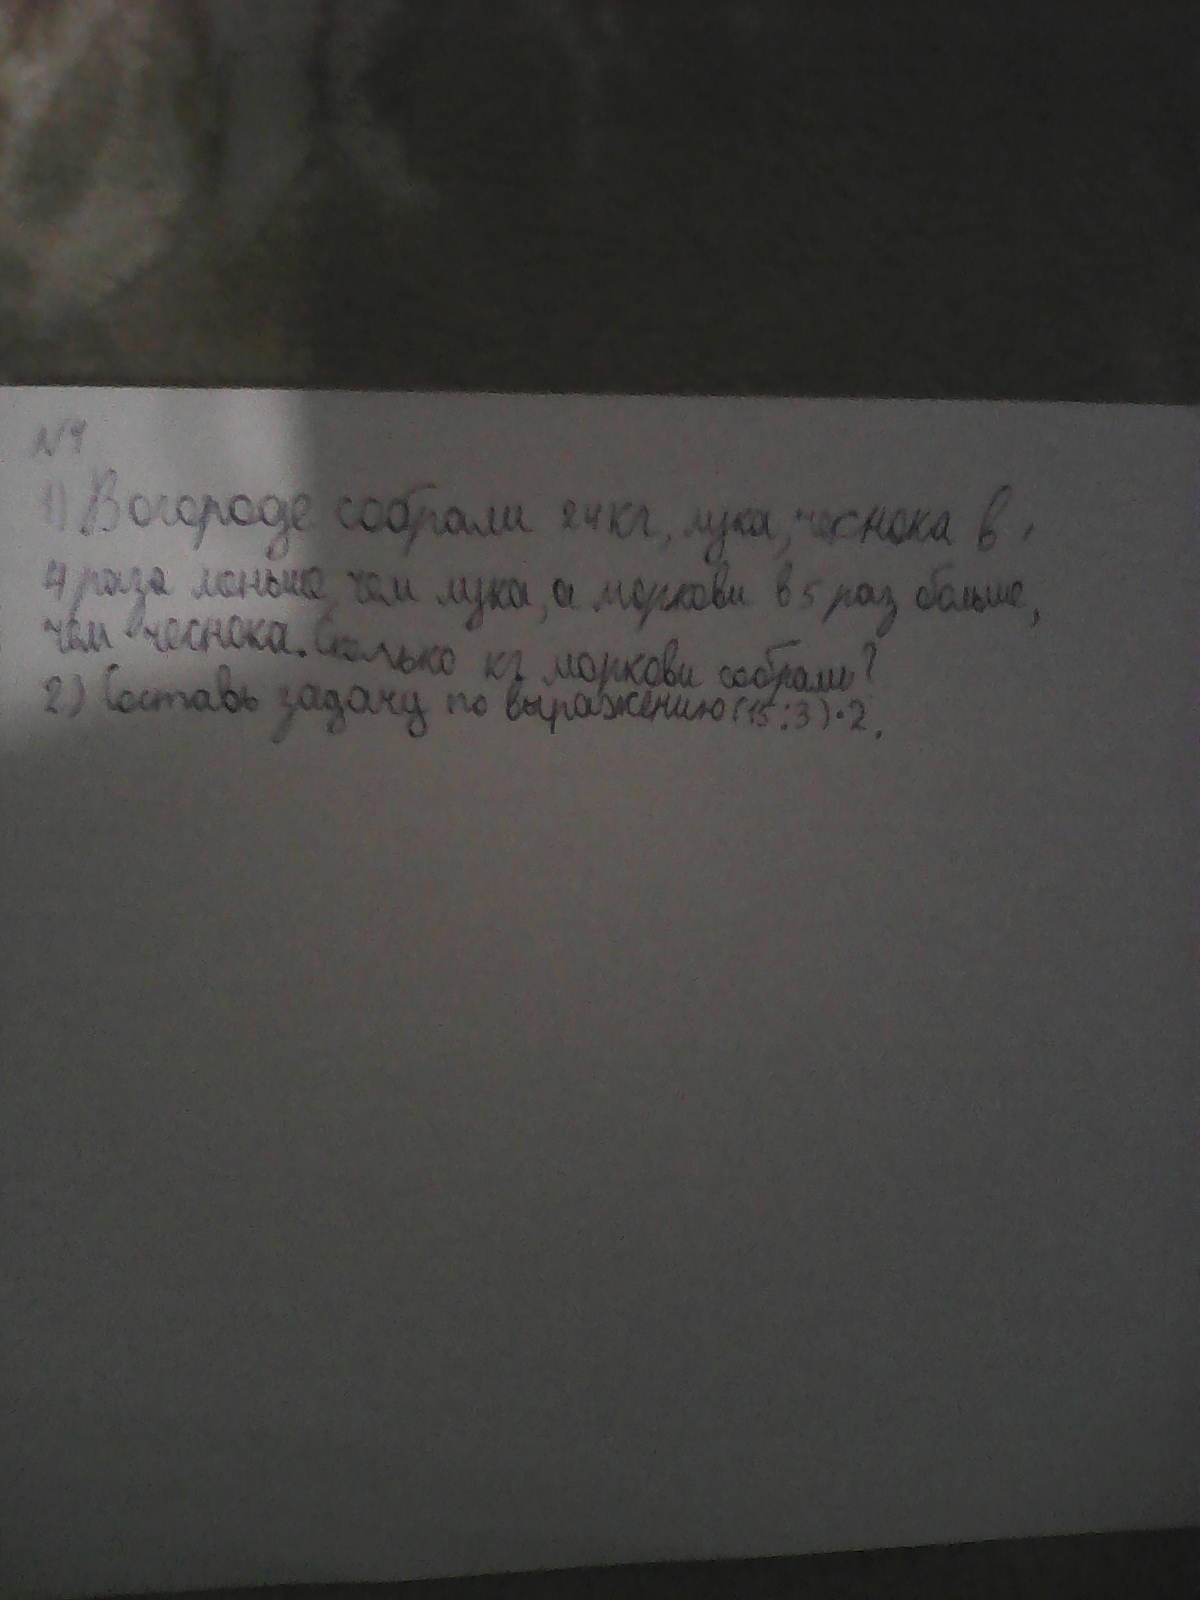 №4
1) В огороде собрали 24 кг, лука, чеснока в
4 раза меньше, чем лука, а моркови в 5 раз больше,
чем чеснока. Сколько кг моркови собрали?
2) Составь задачу по выражению (15:3)·2.